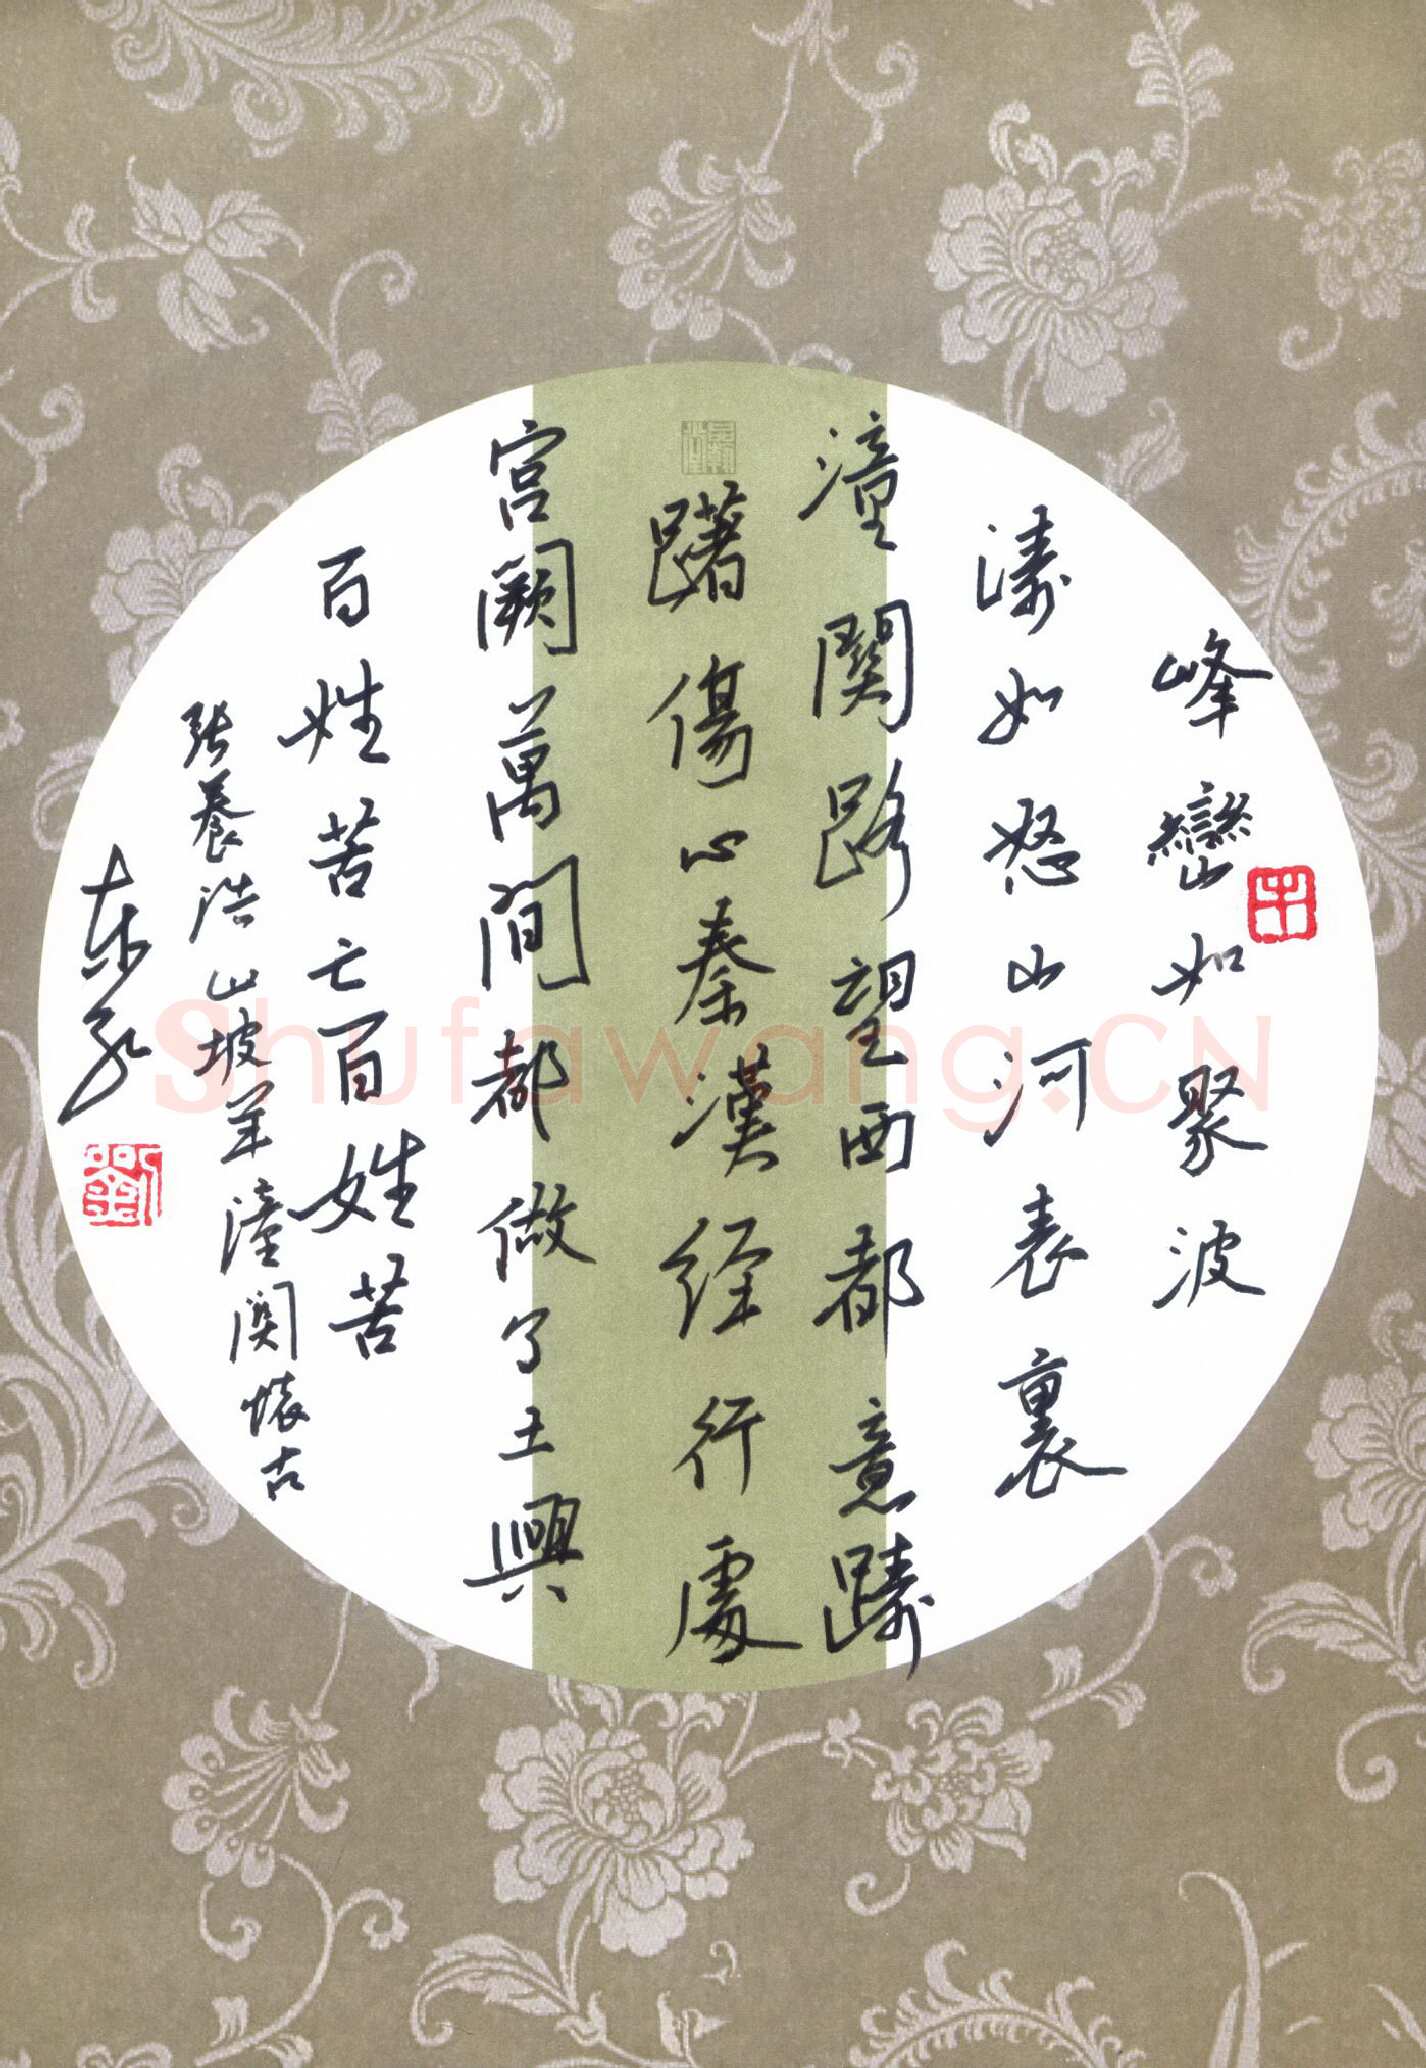 峰巒如聚波
濤如怒山河表裏
潼関路望西都意躊
躇傷心秦漢經行處
宫阙萬间都做了土興
百姓苦亡百姓苦
张養浩山坡羊潼関懷古
Shufawang.CN